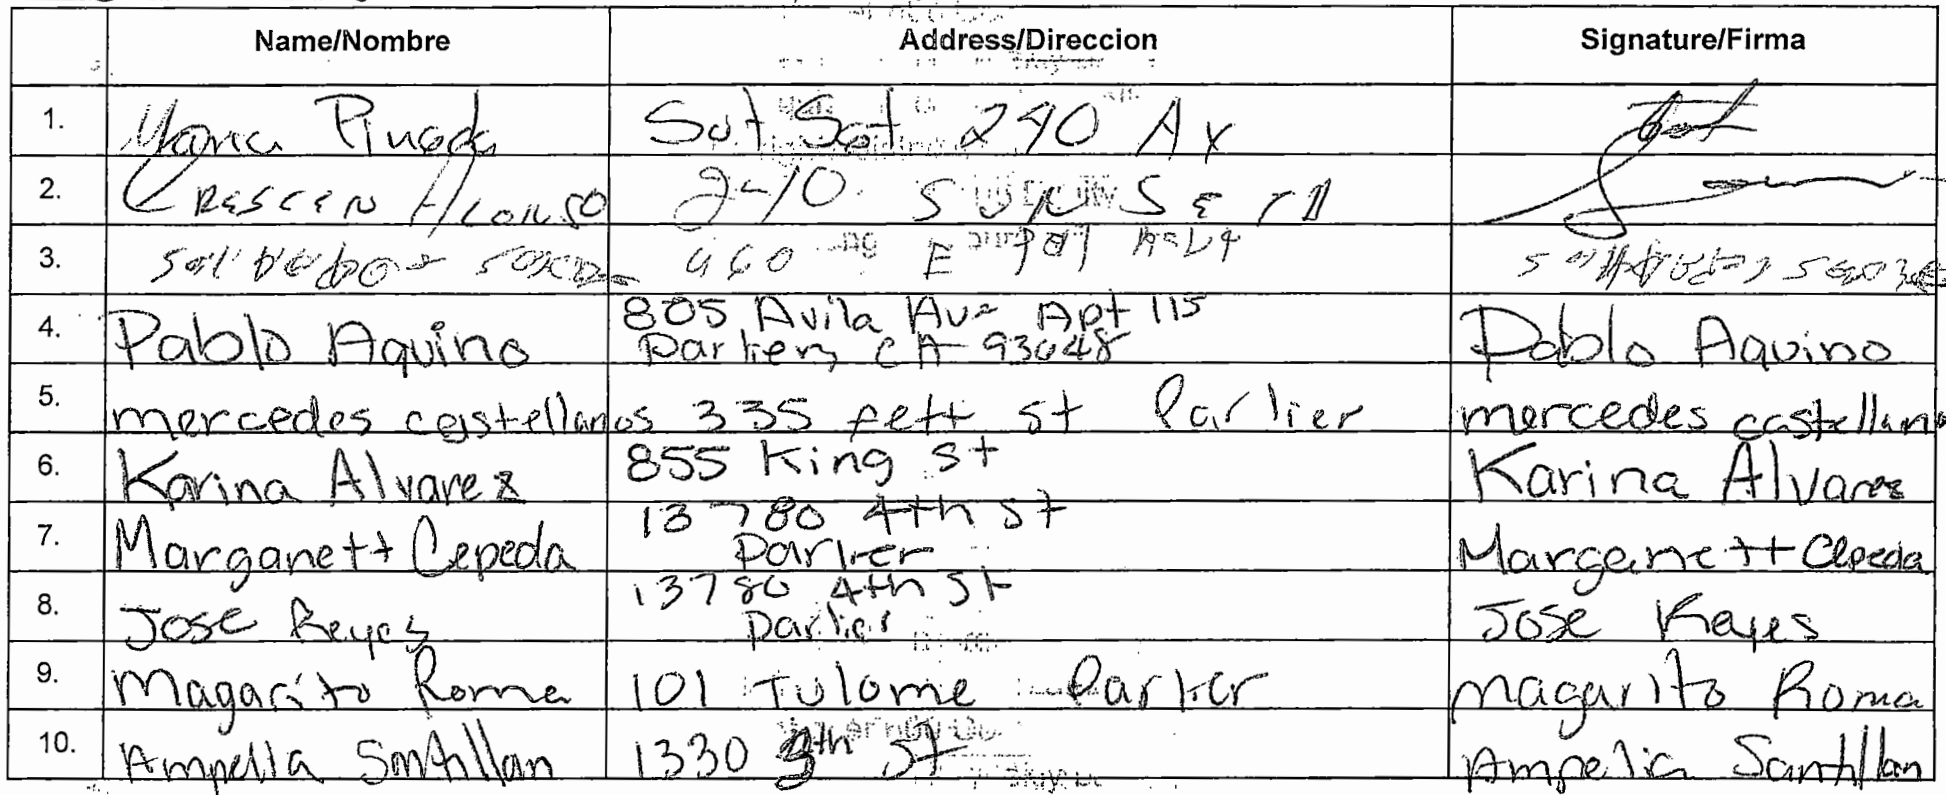 Name/Nombre Address/Direccion Signature/Firma
1. Maria Pineda Sot Sat 290 Ax
2. CRESCEN Alonso 240 SUNSET
3. 460 E
4. Pablo Aquino 805 Avila Ave Apt 115 Pablo Aquino
Parlier, CA 93648
5. mercedes castellanos 335 fett st Parlier mercedes castellan
6. Karina Alvarez 855 King st Karina Alvarez
7. Marganett Cepeda 13780 4th st Marganett Cepeda
Parlier
8. Jose Reyes 13780 4th st Jose Reyes
Parlier
9. Magarito Roma 101 Tulome Parlier magarito Roma
10. Ampelia Santillan 1330 5th st Ampelia Santillan